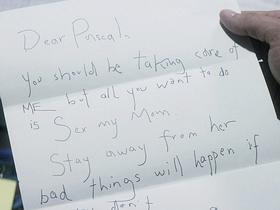 Dear Principal,
You should be taking care of
ME but all you want to do
is Sex my Mom.
Stay away from her
bad things will happen if
don't